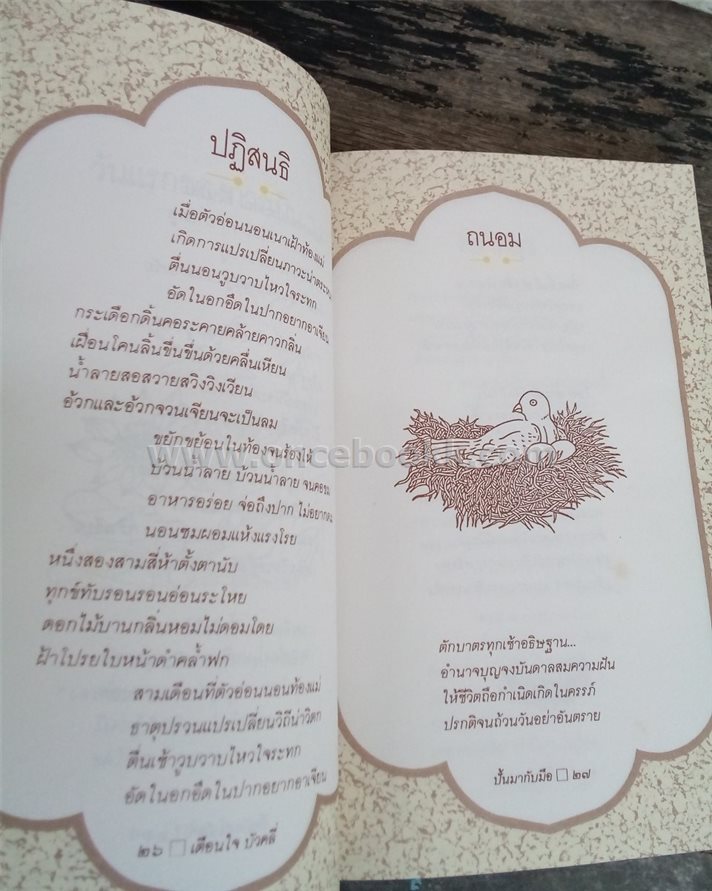 ปฏิสนธิ
เมื่อตัวอ่อนนอนเนาเฝ้าท้องแม่
เกิดการแปรเปลี่ยนภาวะน่าตระหนก
ตื่นนอนวูบวาบไหวใจระทก
อัดในอกอืดในปากอยากอาเจียน
กระเดือกดิ้นคอระคายคล้ายคาวกลิ่น
เฝื่อนโคนลิ้นขื่นขื่นด้วยคลื่นเหียน
น้ำลายสอสวายสวิงวิงเวียน
อ้วกและอ้วกจวนเจียนจะเป็นลม
ขยักขย้อนในท้องจนร้องไห้
บ้วนน้ำลาย บ้วนน้ำลาย จนคอขม
อาหารอร่อย จ่อถึงปาก ไม่อยากดม
นอนซมผอมแห้งแรงโรย
หนึ่งสองสามสี่ห้าตั้งตานับ
ทุกข์ทับรอนรอนอ่อนระโหย
ดอกไม้บานกลิ่นหอมไม่ดอมโดย
ฝ้าโปรยใบหน้าดำคล้ำฟก
สามเดือนที่ตัวอ่อนนอนท้องแม่
ธาตุปรวนแปรเปลี่ยนวิถีน่าวิตก
ตื่นเช้าวูบวาบไหวใจระทก
อัดในอกอืดในปากอยากอาเจียน
๒๖ □ เตือนใจ บัวคลี่
ถนอม
ตักบาตรทุกเช้าอธิษฐาน...
อำนาจบุญจงบันดาลสมความฝัน
ให้ชีวิตถือกำเนิดเกิดในครรภ์
ปรกติจนถ้วนวันอย่าอันตราย
ปั้นมากับมือ □ ๒๗
www.oncebookk.com